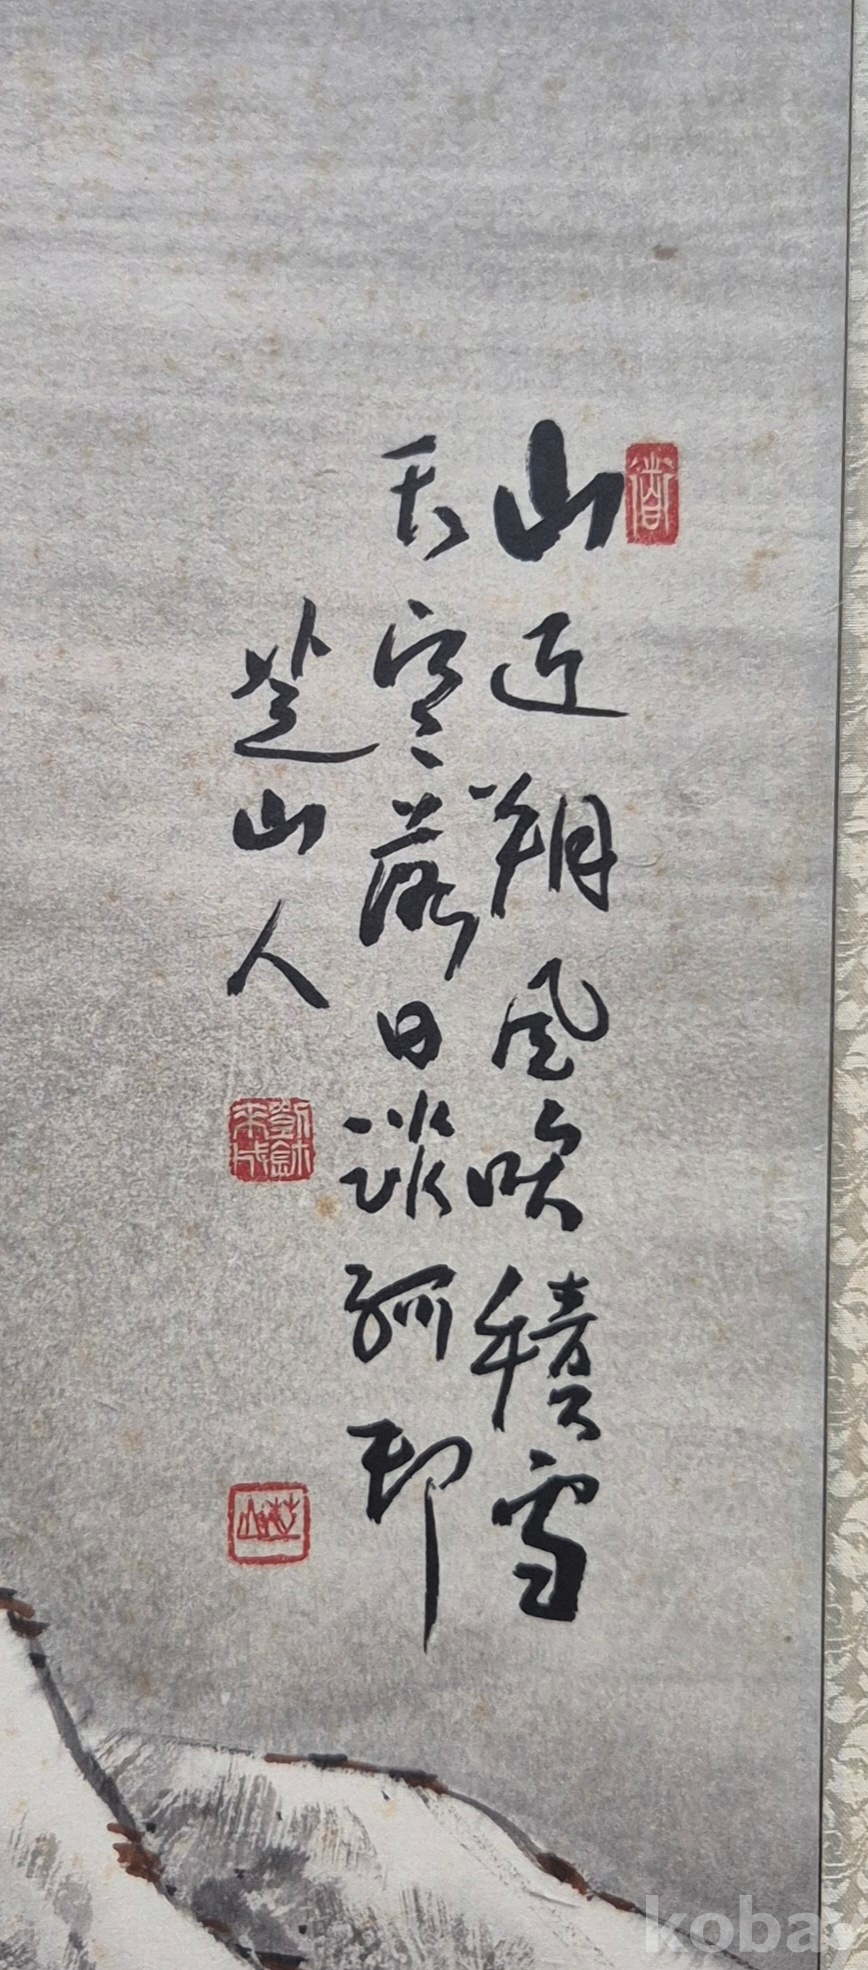 山近朔風吹積雪
天寒落日淡孤邨
芝山人
koba